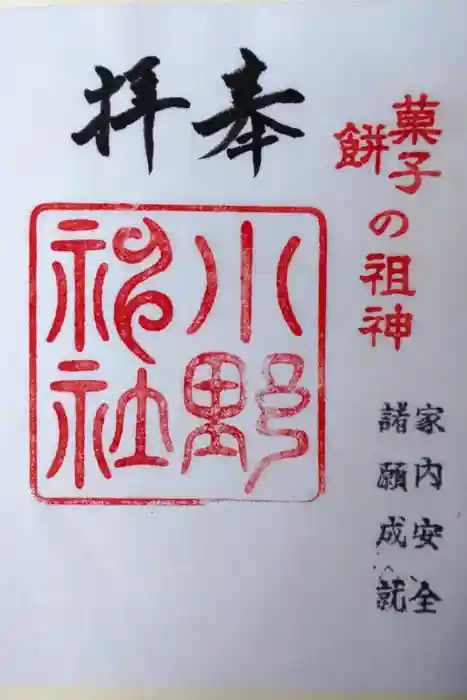 奉拝
菓子
餅
の祖神
小野
神社
家内安全
諸願成就